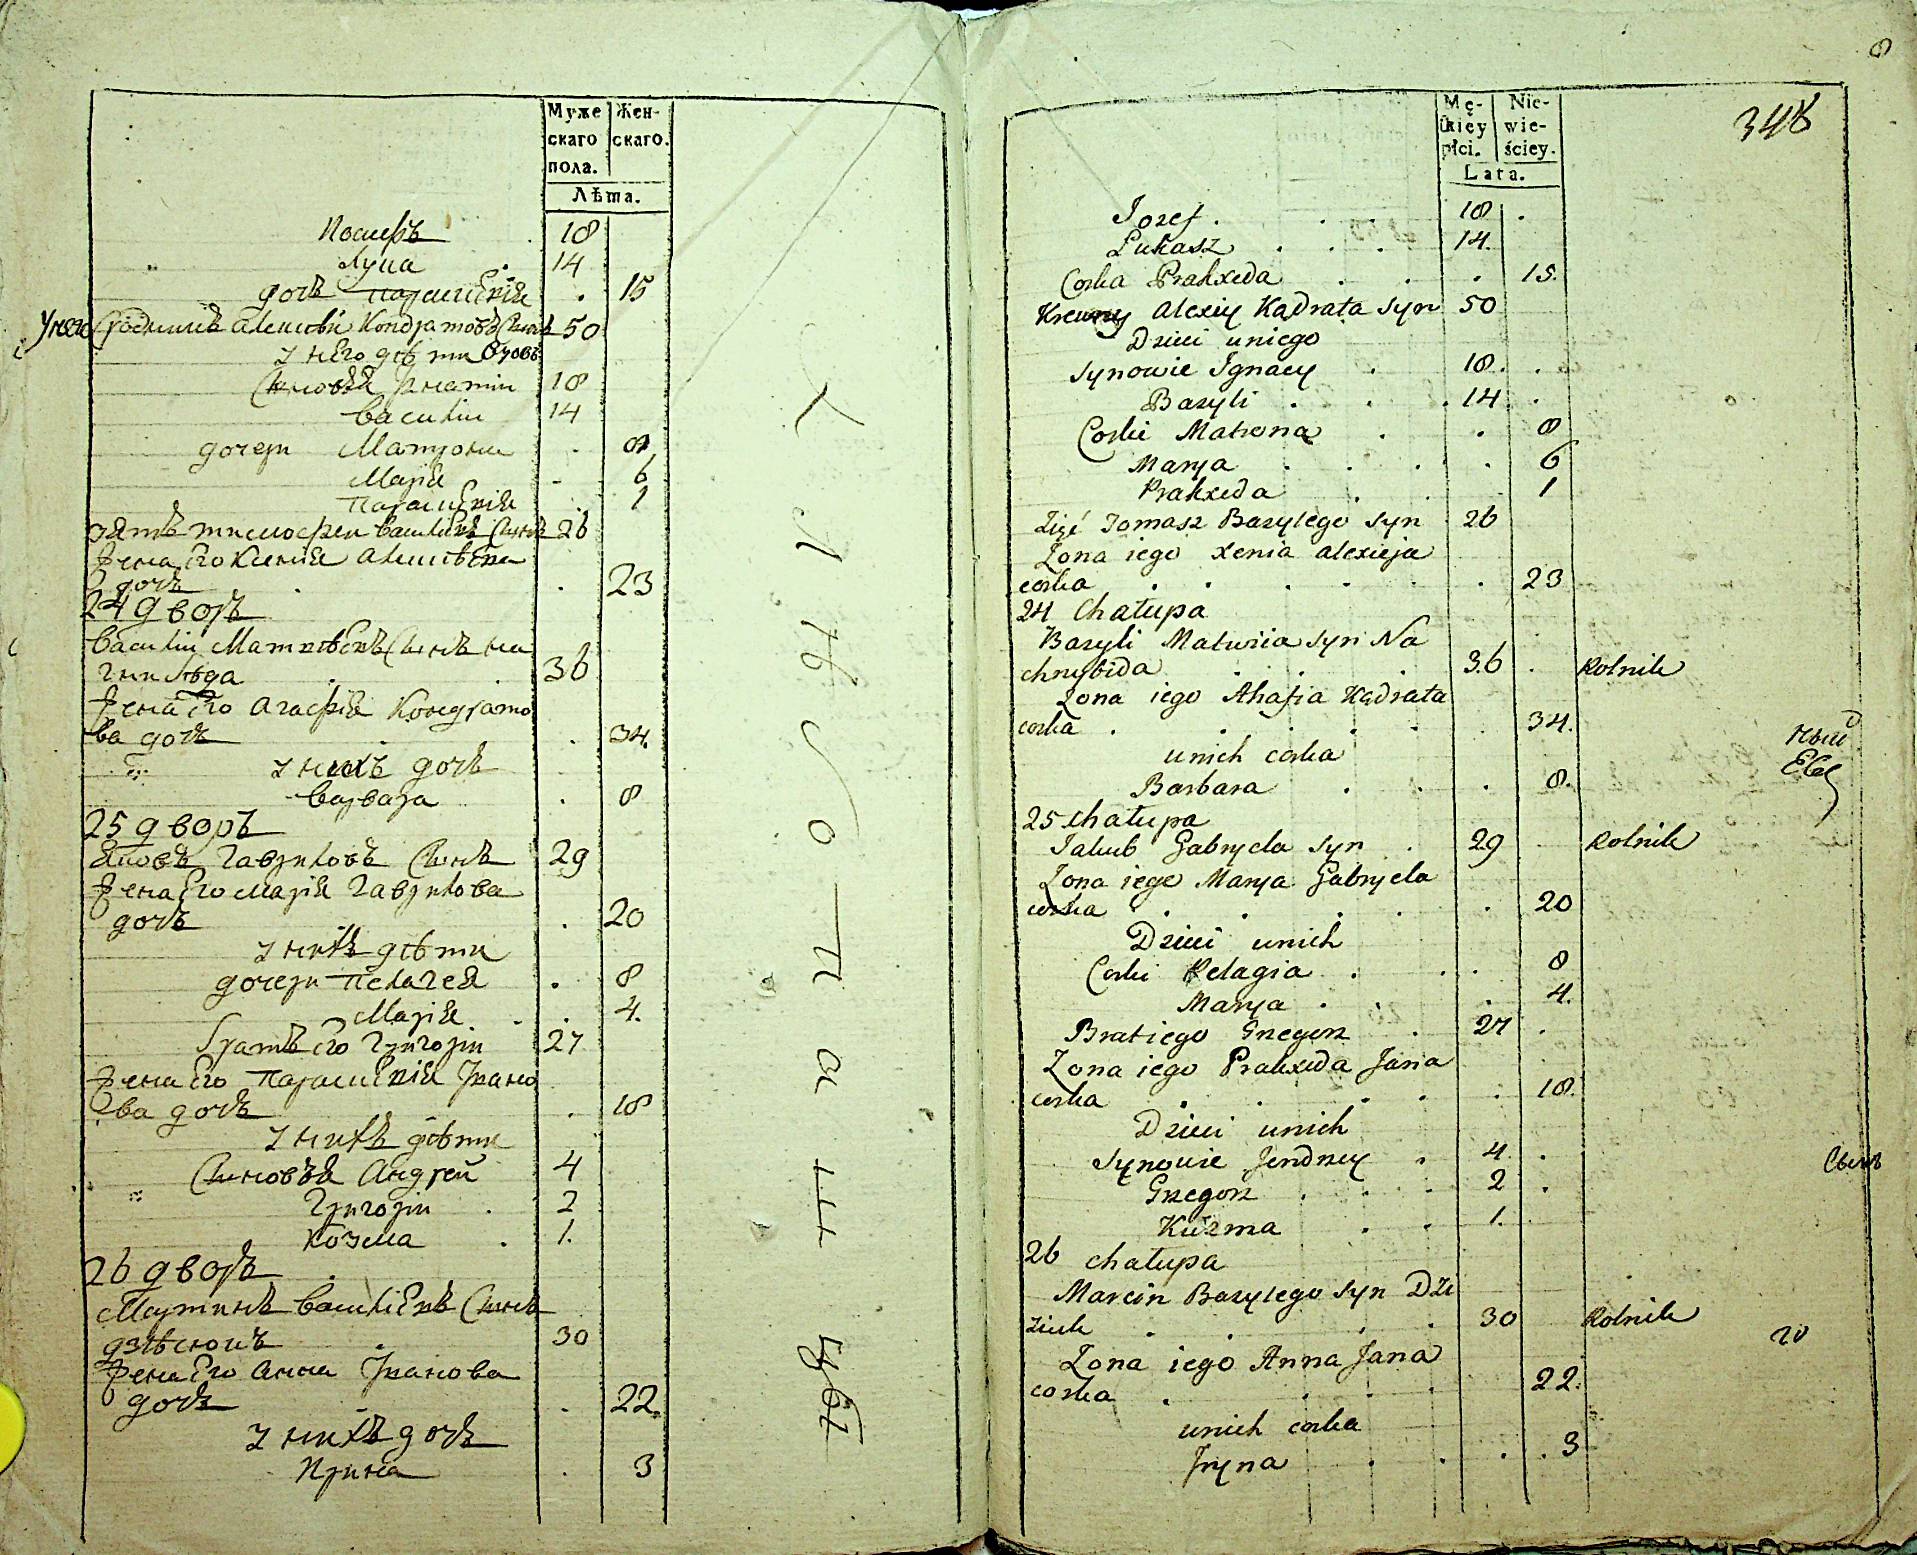 Муже
скаго
пола.
Жен-
скаго.
Лѣта.
Иосифъ 18
Лука 14
дочь Параскевія 15
У него Сродникъ Алексѣй Кондратовъ Сынъ 50
у него дѣти Вдовъ
Сыновья Игнатій 18
Василій 14
дочери Матрона 8
Марія 6
Параскевія 1
зять Тимофей Васильевъ Сынъ 26
жена Его Ксенія Алексѣева
дочь 23
24 дворъ
Василій Матвѣевъ Сынъ На
гнибѣда 36
жена Его Агафія Кондрато
ва дочь 34.
у нихъ дочь
Варвара 8
25 дворъ
Яковъ Гавриловъ Сынъ 29
жена Его Марія Гаврилова
дочь 20
у нихъ дѣти
дочери Пелагея 8
Марія 4.
братъ Его Григорій 27
жена Его Параскевія Ивано
ва дочь 18
у нихъ дѣти
Сыновья Андрей 4
Григорій 2
Козма 1.
26 дворъ
Мартинъ Васильевъ Сынъ
дзѣсюкъ 30
жена Его Анна Иванова
дочь 22.
у нихъ дочь
Ирина 3
8
348
Mę-
zkiey
płci.
Nie-
wie-
ściey.
Lata.
Jozef 18
Łukasz 14.
Corka Prakxeda 15.
Krewny Alexiy Kądrata Syn 50
Dzieci uniego
Synowie Ignacy 18.
Bazyli 14.
Corki Matrona 8
Marya 6
Prakxeda 1
Zięć Tomasz Bazylego Syn 26
Zona iego Xenia Alexieja
corka 23
24 Chałupa
Bazyli Matwiia Syn Na
chnybida 36 Rolnik
Zona iego Ahafia Kądrata
corka 34.
unich corka
Barbara 8.
25 chałupa
Jakub Gabryela Syn 29 Rolnik
Zona iego Marya Gabryela
corka 20
Dzieci unich
Corki Pelagia 8
Marya 4.
Brat iego Grzegorz 27
Zona iego Prakxeda Jana
corka 18.
Dzieci unich
Synowie Jendrzey 4
Grzegorz 2
Kuzma 1.
26 chałupa
Marcin Bazylego Syn Dzi
ziuk 30 Rolnik
Zona iego Anna Jana
corka 22.
unich corka
Iryna 3
Сынъ
го